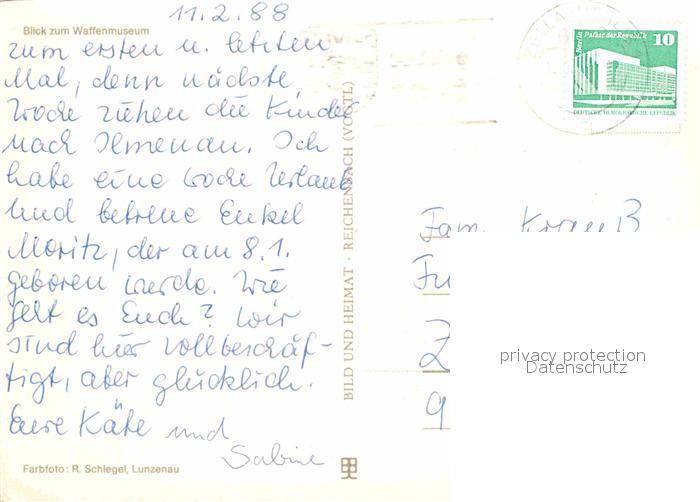 11.2.88
Blick zum Waffenmuseum
zum ersten u. letzten
Mal, denn nächste
Woche ziehen die Kinder
nach Ilmenau. Ich
habe eine Woche Urlaub
und betreue Enkel
Moritz, der am 8.1.
geboren wurde. Wie
geht es Euch? Wir
sind hier vollbeschäf-
tigt, aber glücklich.
Eure Käte und
Sabine
Farbfoto: R. Schlegel, Lunzenau
BILD UND HEIMAT · REICHENBACH (VOGTL)
Berlin Palast der Republik 10
DEUTSCHE DEMOKRATISCHE REPUBLIK
Fam.
privacy protection
Datenschutz